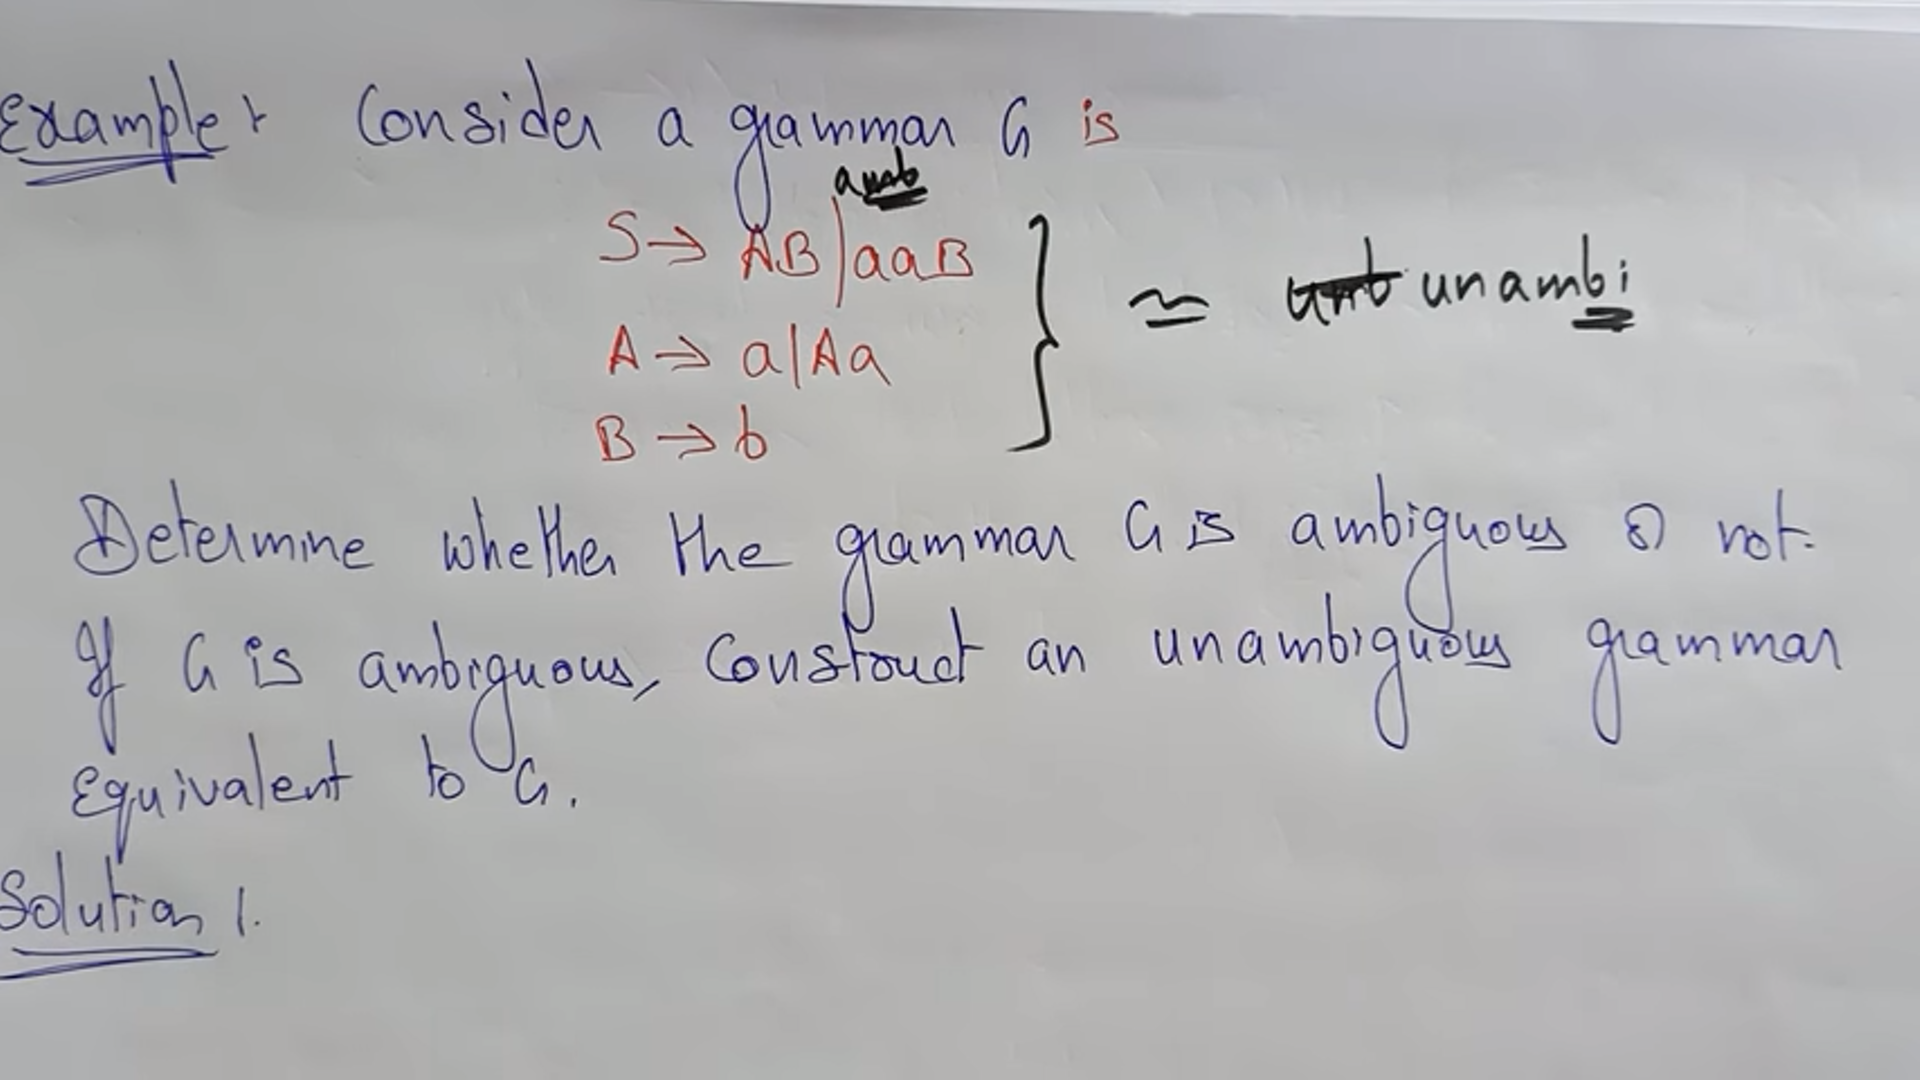 Example: Consider a grammar G is
amb
S → AB | aaB
A → a | Aa
B → b
≃ unambi
Determine whether the grammar G is ambiguous or not.
If G is ambiguous, Construct an unambiguous grammar
Equivalent to G.
Solution: